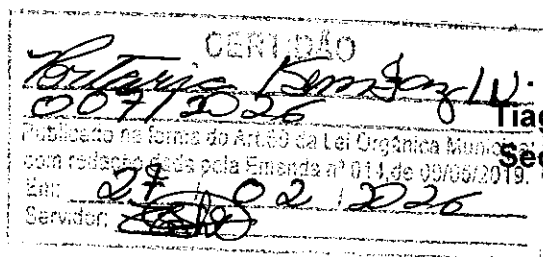 CERTIDÃO
Portaria SemSaz Nº
007/2026
Tiag
Publicado na forma do Art.90 da Lei Orgânica Municipal
com redação dada pela Emenda nº 014, de 09/08/2019.
Sec
Em: 27 / 02 / 2026
Servidor: